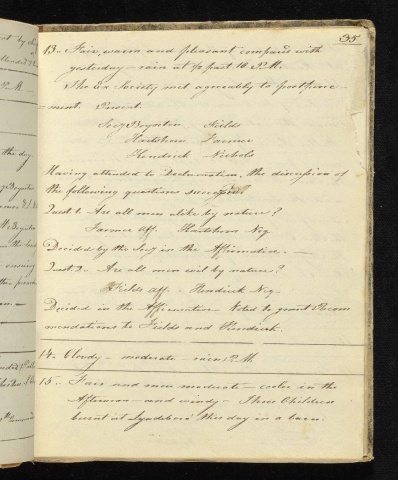 35
13. Fair, warm and pleasant compared with
yesterday - rain at ½ past 10 P.M.
The Ex Society met agreeably to postpone-
-ment. Present.
Boynton Fields
Hartshorn Farmer
Kendrick Nichols
Having attended to Declamation, the discussion of
the following questions
Quest 1. Are all men alike by nature?
Farmer aff. Hartshorn Neg
Decided by the in the Affirmative. -
Quest 2. Are all men evil by nature?
Fields aff - Kendrick Neg.
Decided in the Affirmative - Voted to grant Recom
mendations to Fields and Kendrick.
14. Cloudy - moderate - rain P.M.
15. Fair and more moderate - cooler in the
Afternoon - and windy - Three Children
burnt at Lyndeboro' this day in a barn.